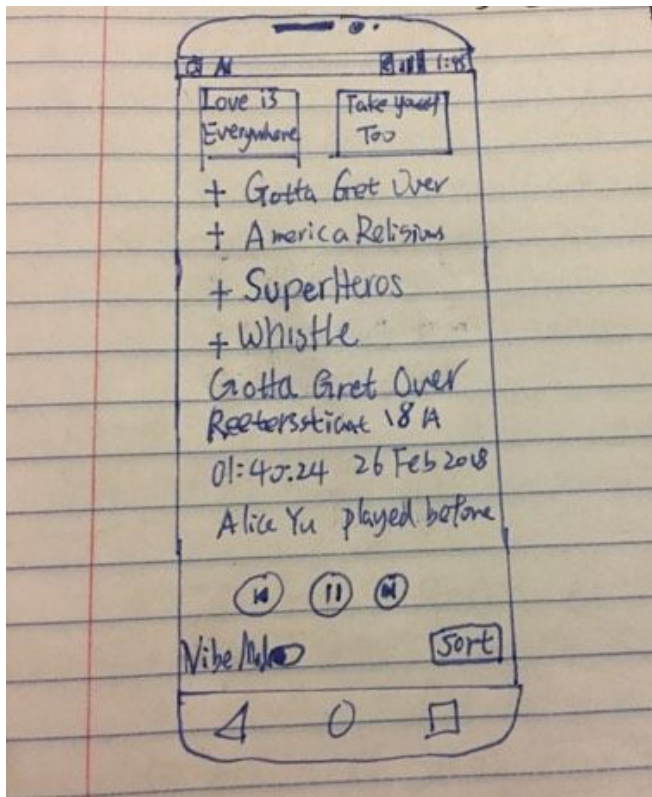 1:45
Love is
Everywhere
Take
Too
+ Gotta Get Over
+ America Religions
+ SuperHeros
+ Whistle
Gotta Gret Over
18 A
01:40:24 26 Feb 2018
Alice Yu played before
Vibe
Sort